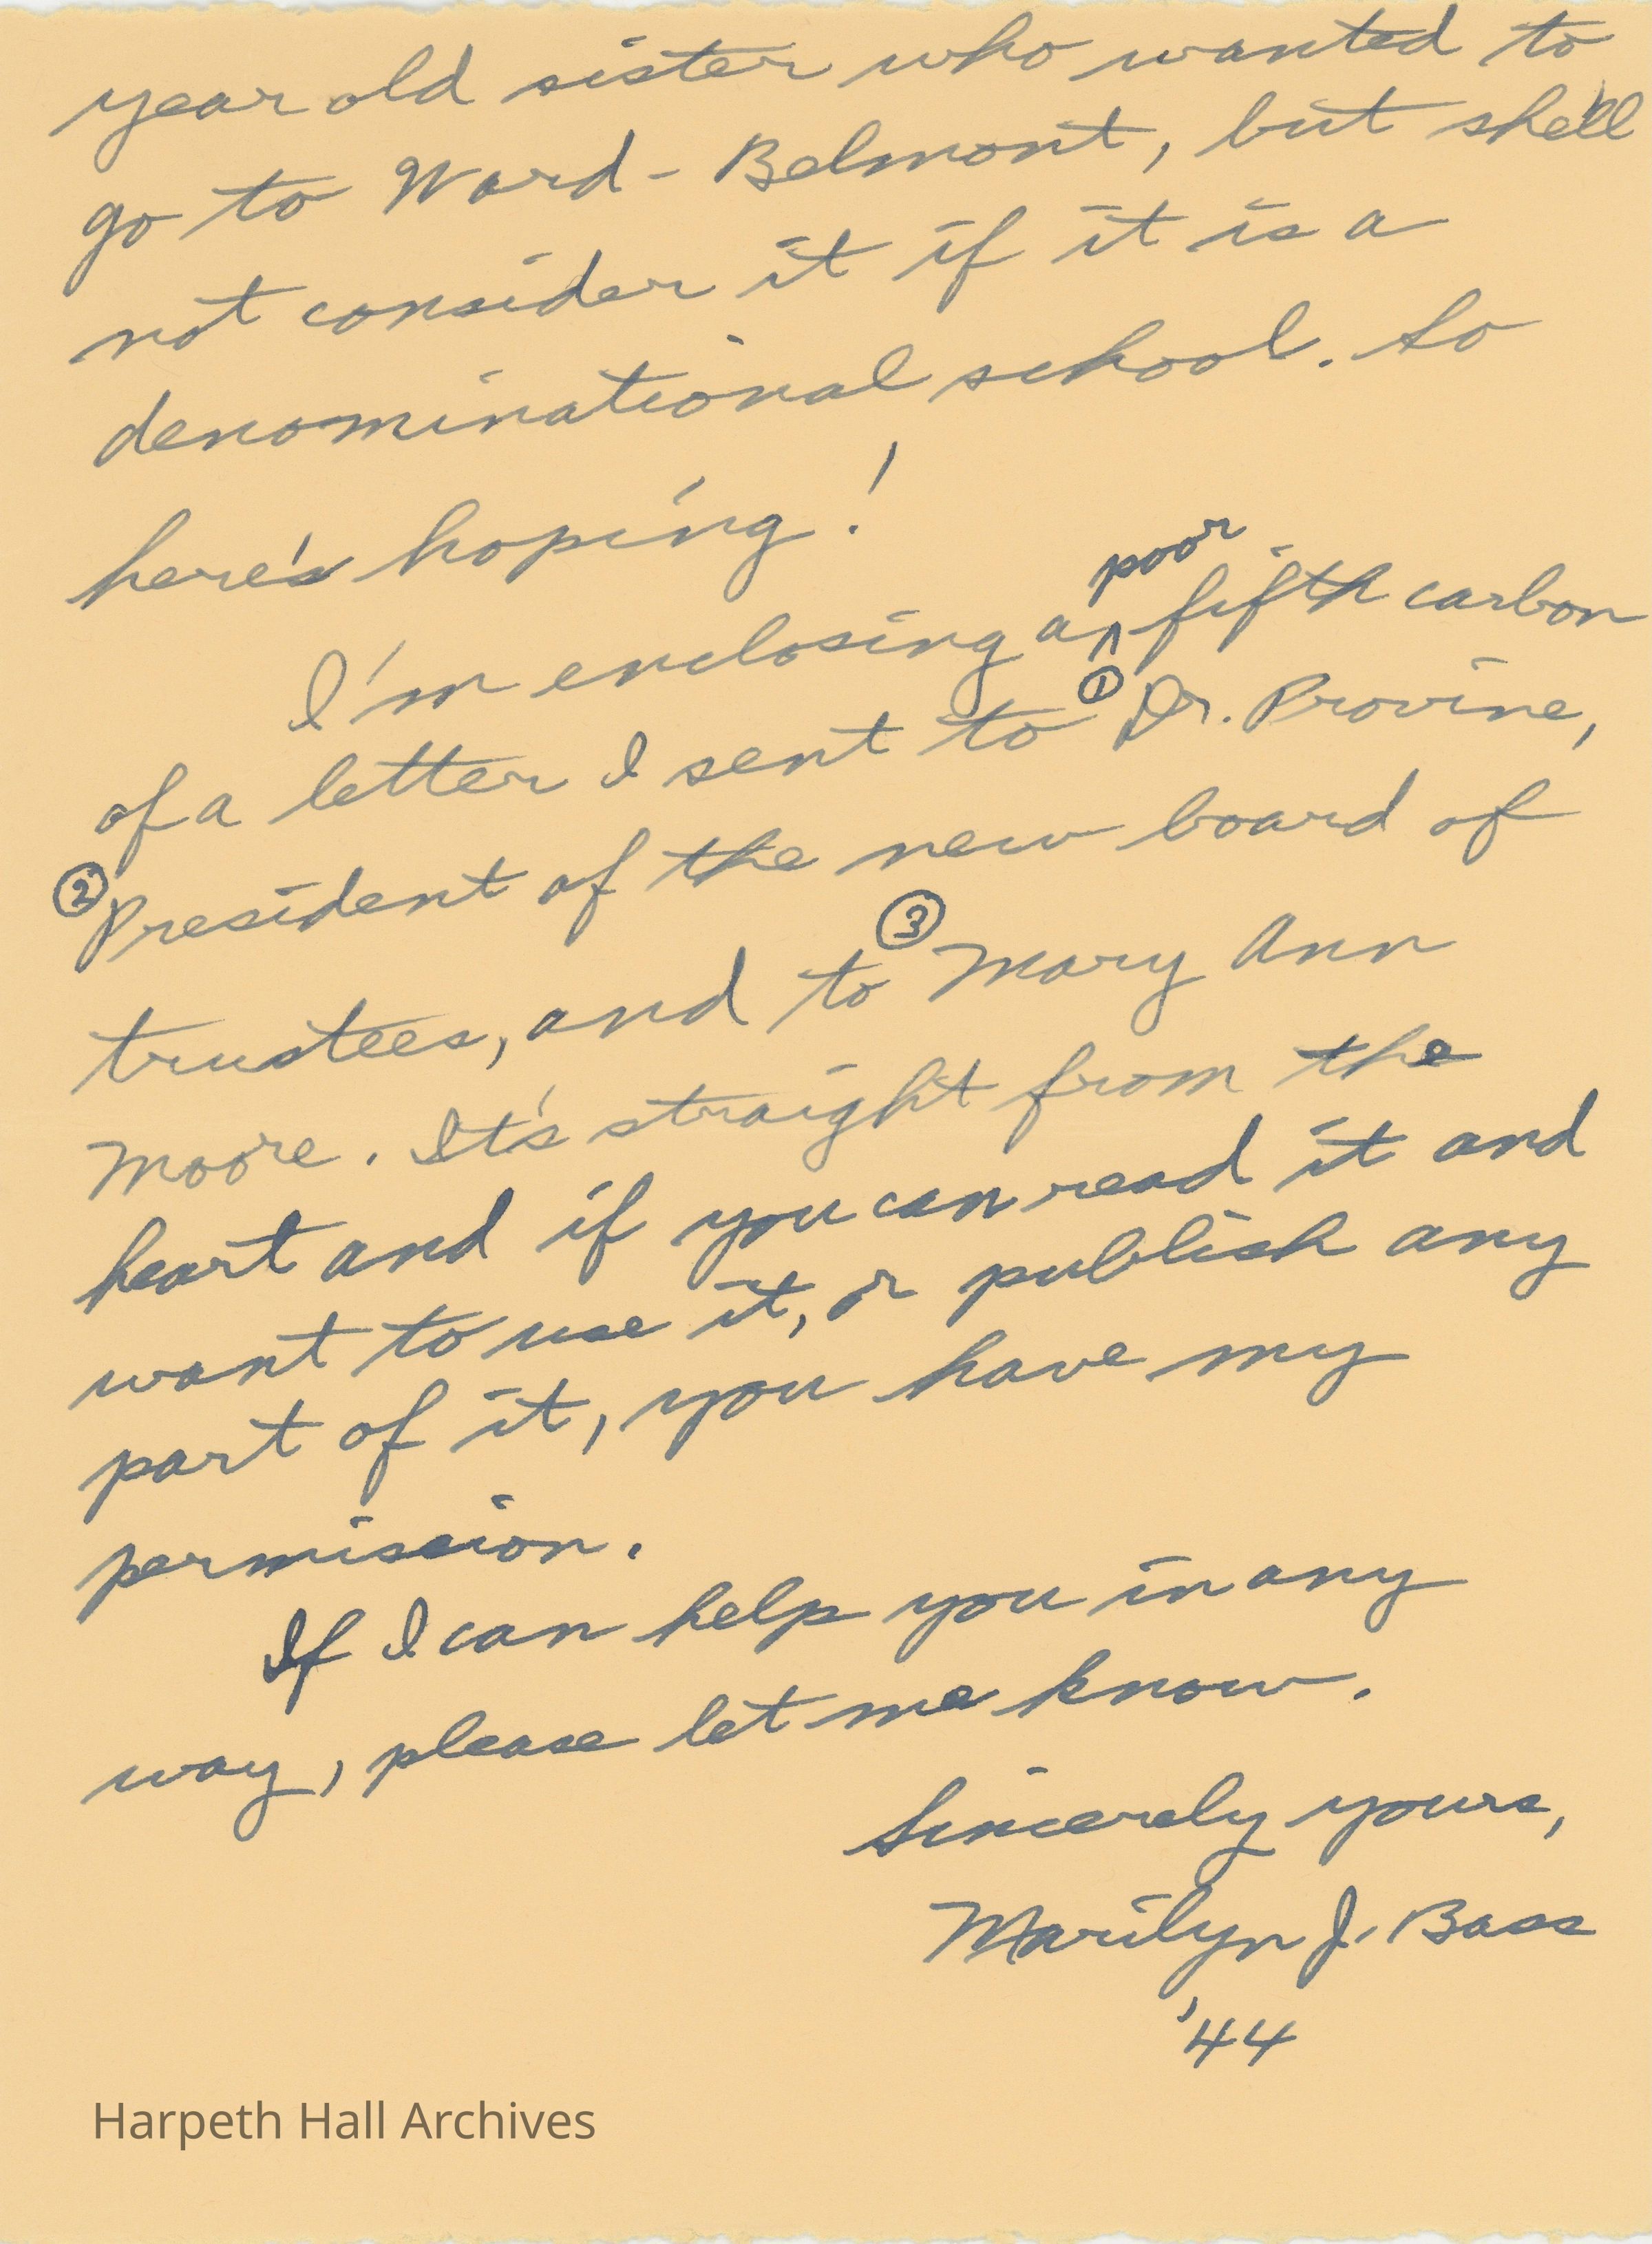 year old sister who wanted to
go to Ward-Belmont, but she'll
not consider it if it is a
denominational school. So
here's hoping!
poor
I'm enclosing a ^ fifth carbon
of a letter I sent to ① Dr. Provine,
② President of the new board of
trustees, and to ③ Mary Ann
Moore. It's straight from the
heart and if you can read it and
want to use it, or publish any
part of it, you have my
permission.
If I can help you in any
way, please let me know.
Sincerely yours,
Marilyn J. Bass
'44
Harpeth Hall Archives